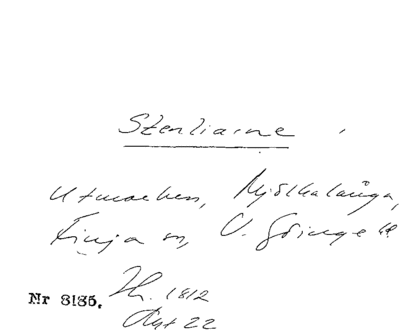 Stenliaine
Utmarken, Mjölkalånga,
Finja sn, V. Göinge hd
Nr 8135. Th. 1812
Avt 22